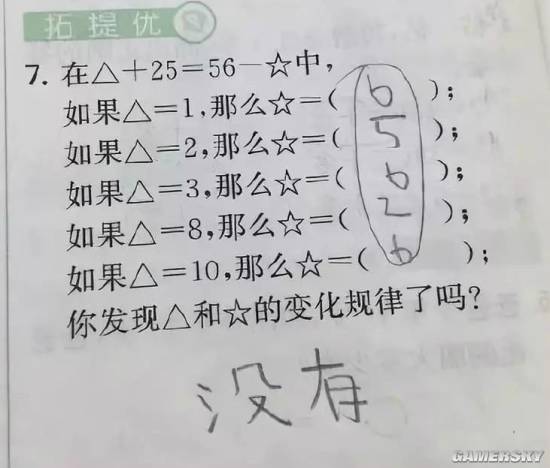 拓提优
7. 在△+25=56-☆中,
如果△=1,那么☆=( 6 );
如果△=2,那么☆=( 5 );
如果△=3,那么☆=( 6 );
如果△=8,那么☆=( 2 );
如果△=10,那么☆=( 6 );
你发现△和☆的变化规律了吗?
没有
GAMERSKY